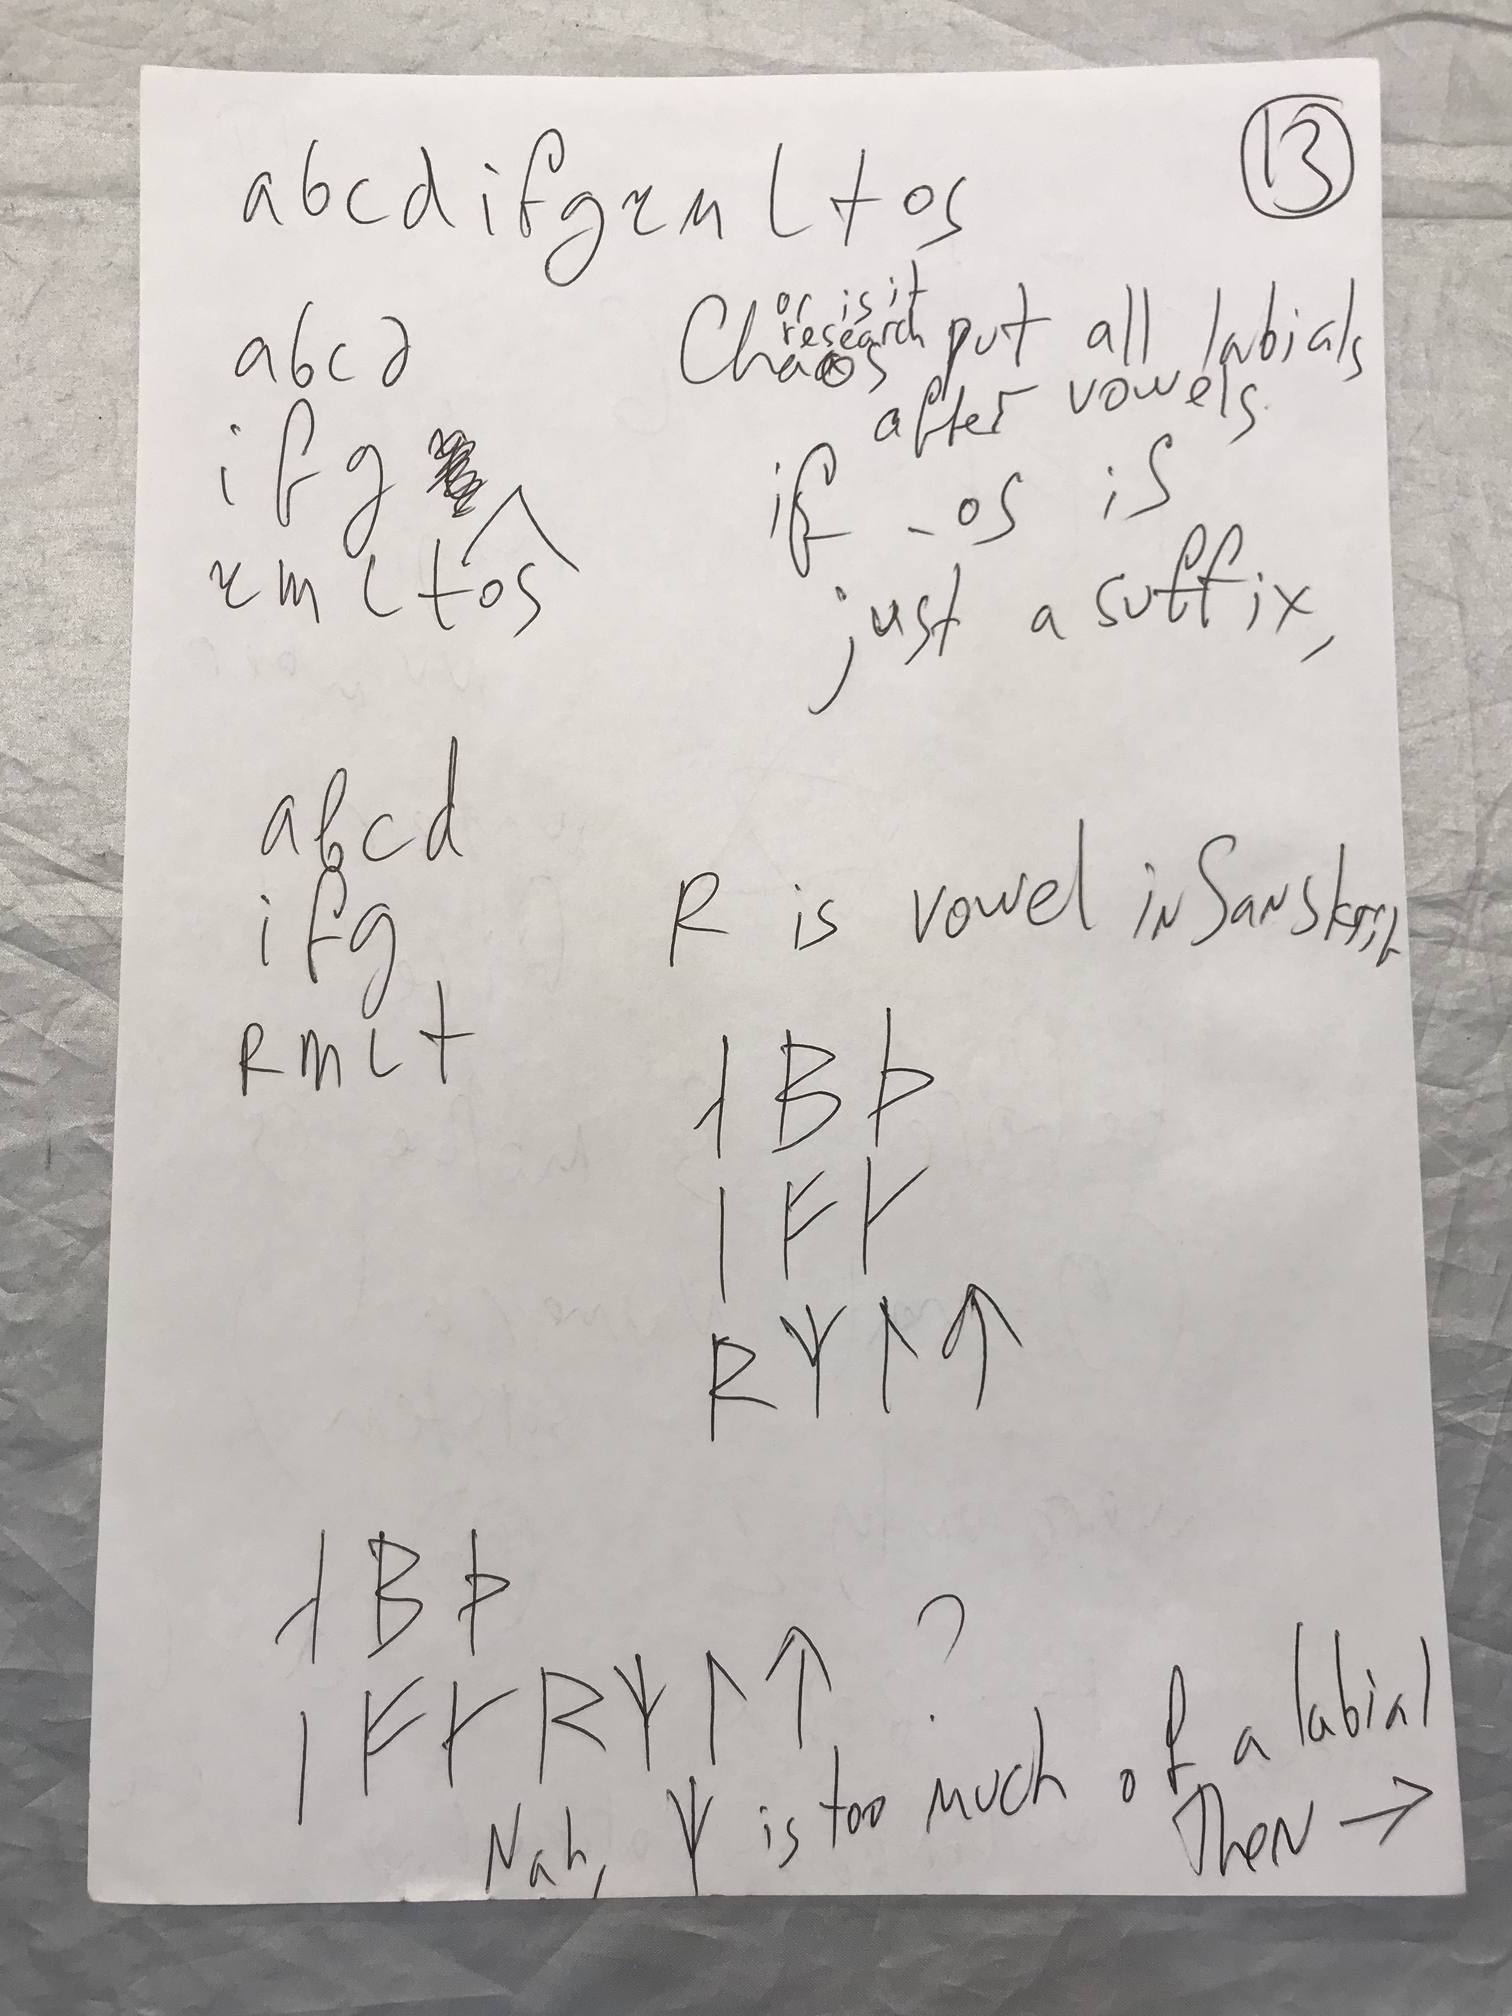 13
abcdifgrmltos
abcd
ifg
rmltos
or is it
research
Chaos put all labials
after vowels
if -os is
just a suffix,
abcd
ifg
Rmlt
R is vowel in Sanskrit
ᛆ ᛒ ᚦ
ᛁ ᚠ ᚴ
ᚱ ᛘ ᛚ ᛏ
ᛆ ᛒ ᚦ
ᛁ ᚠ ᚴ ᚱ ᛘ ᛚ ᛏ ?
Nah, ᛘ is too much of a labial
Then →